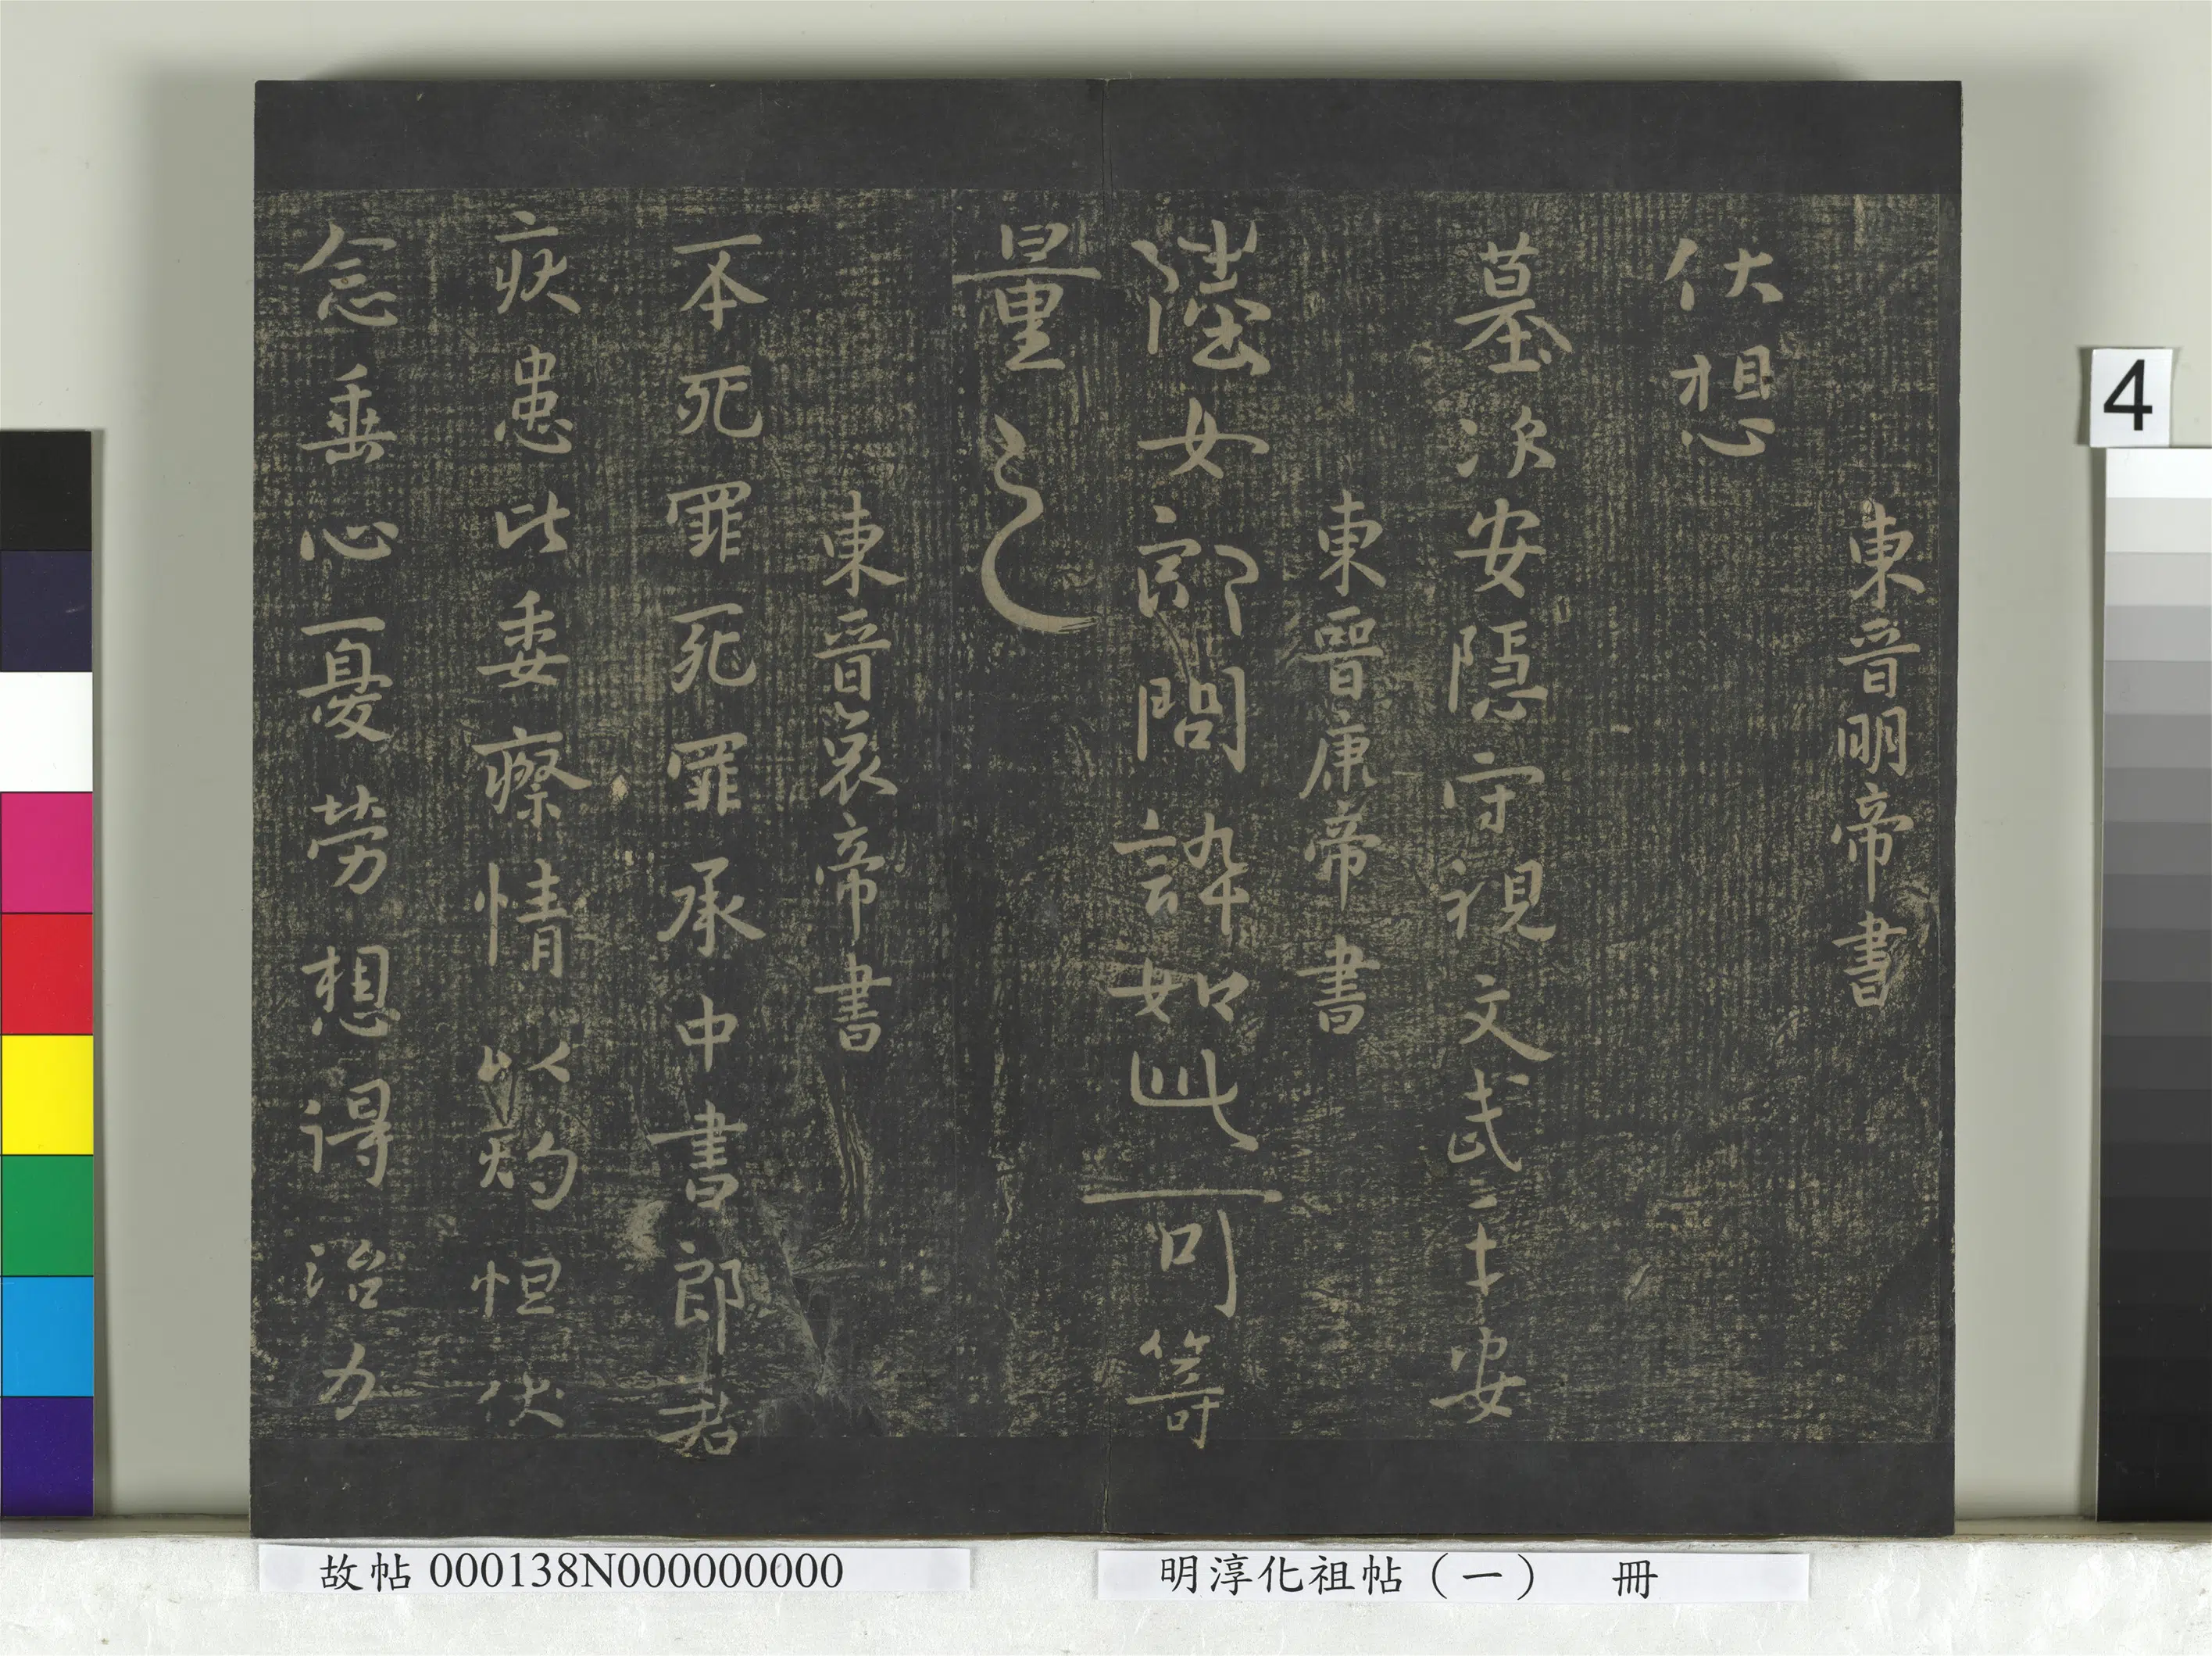 東晉明帝書
伏想
墓次安隱守視文武三十安
東晉康帝書
陸女郎問誶如此可笴
量
東晉哀帝書
不死罪死罪承中書郎君
疾患此委療情以灼怛伏
念垂心憂勞想得治力
4
故帖 000138N000000000
明淳化祖帖(一) 冊